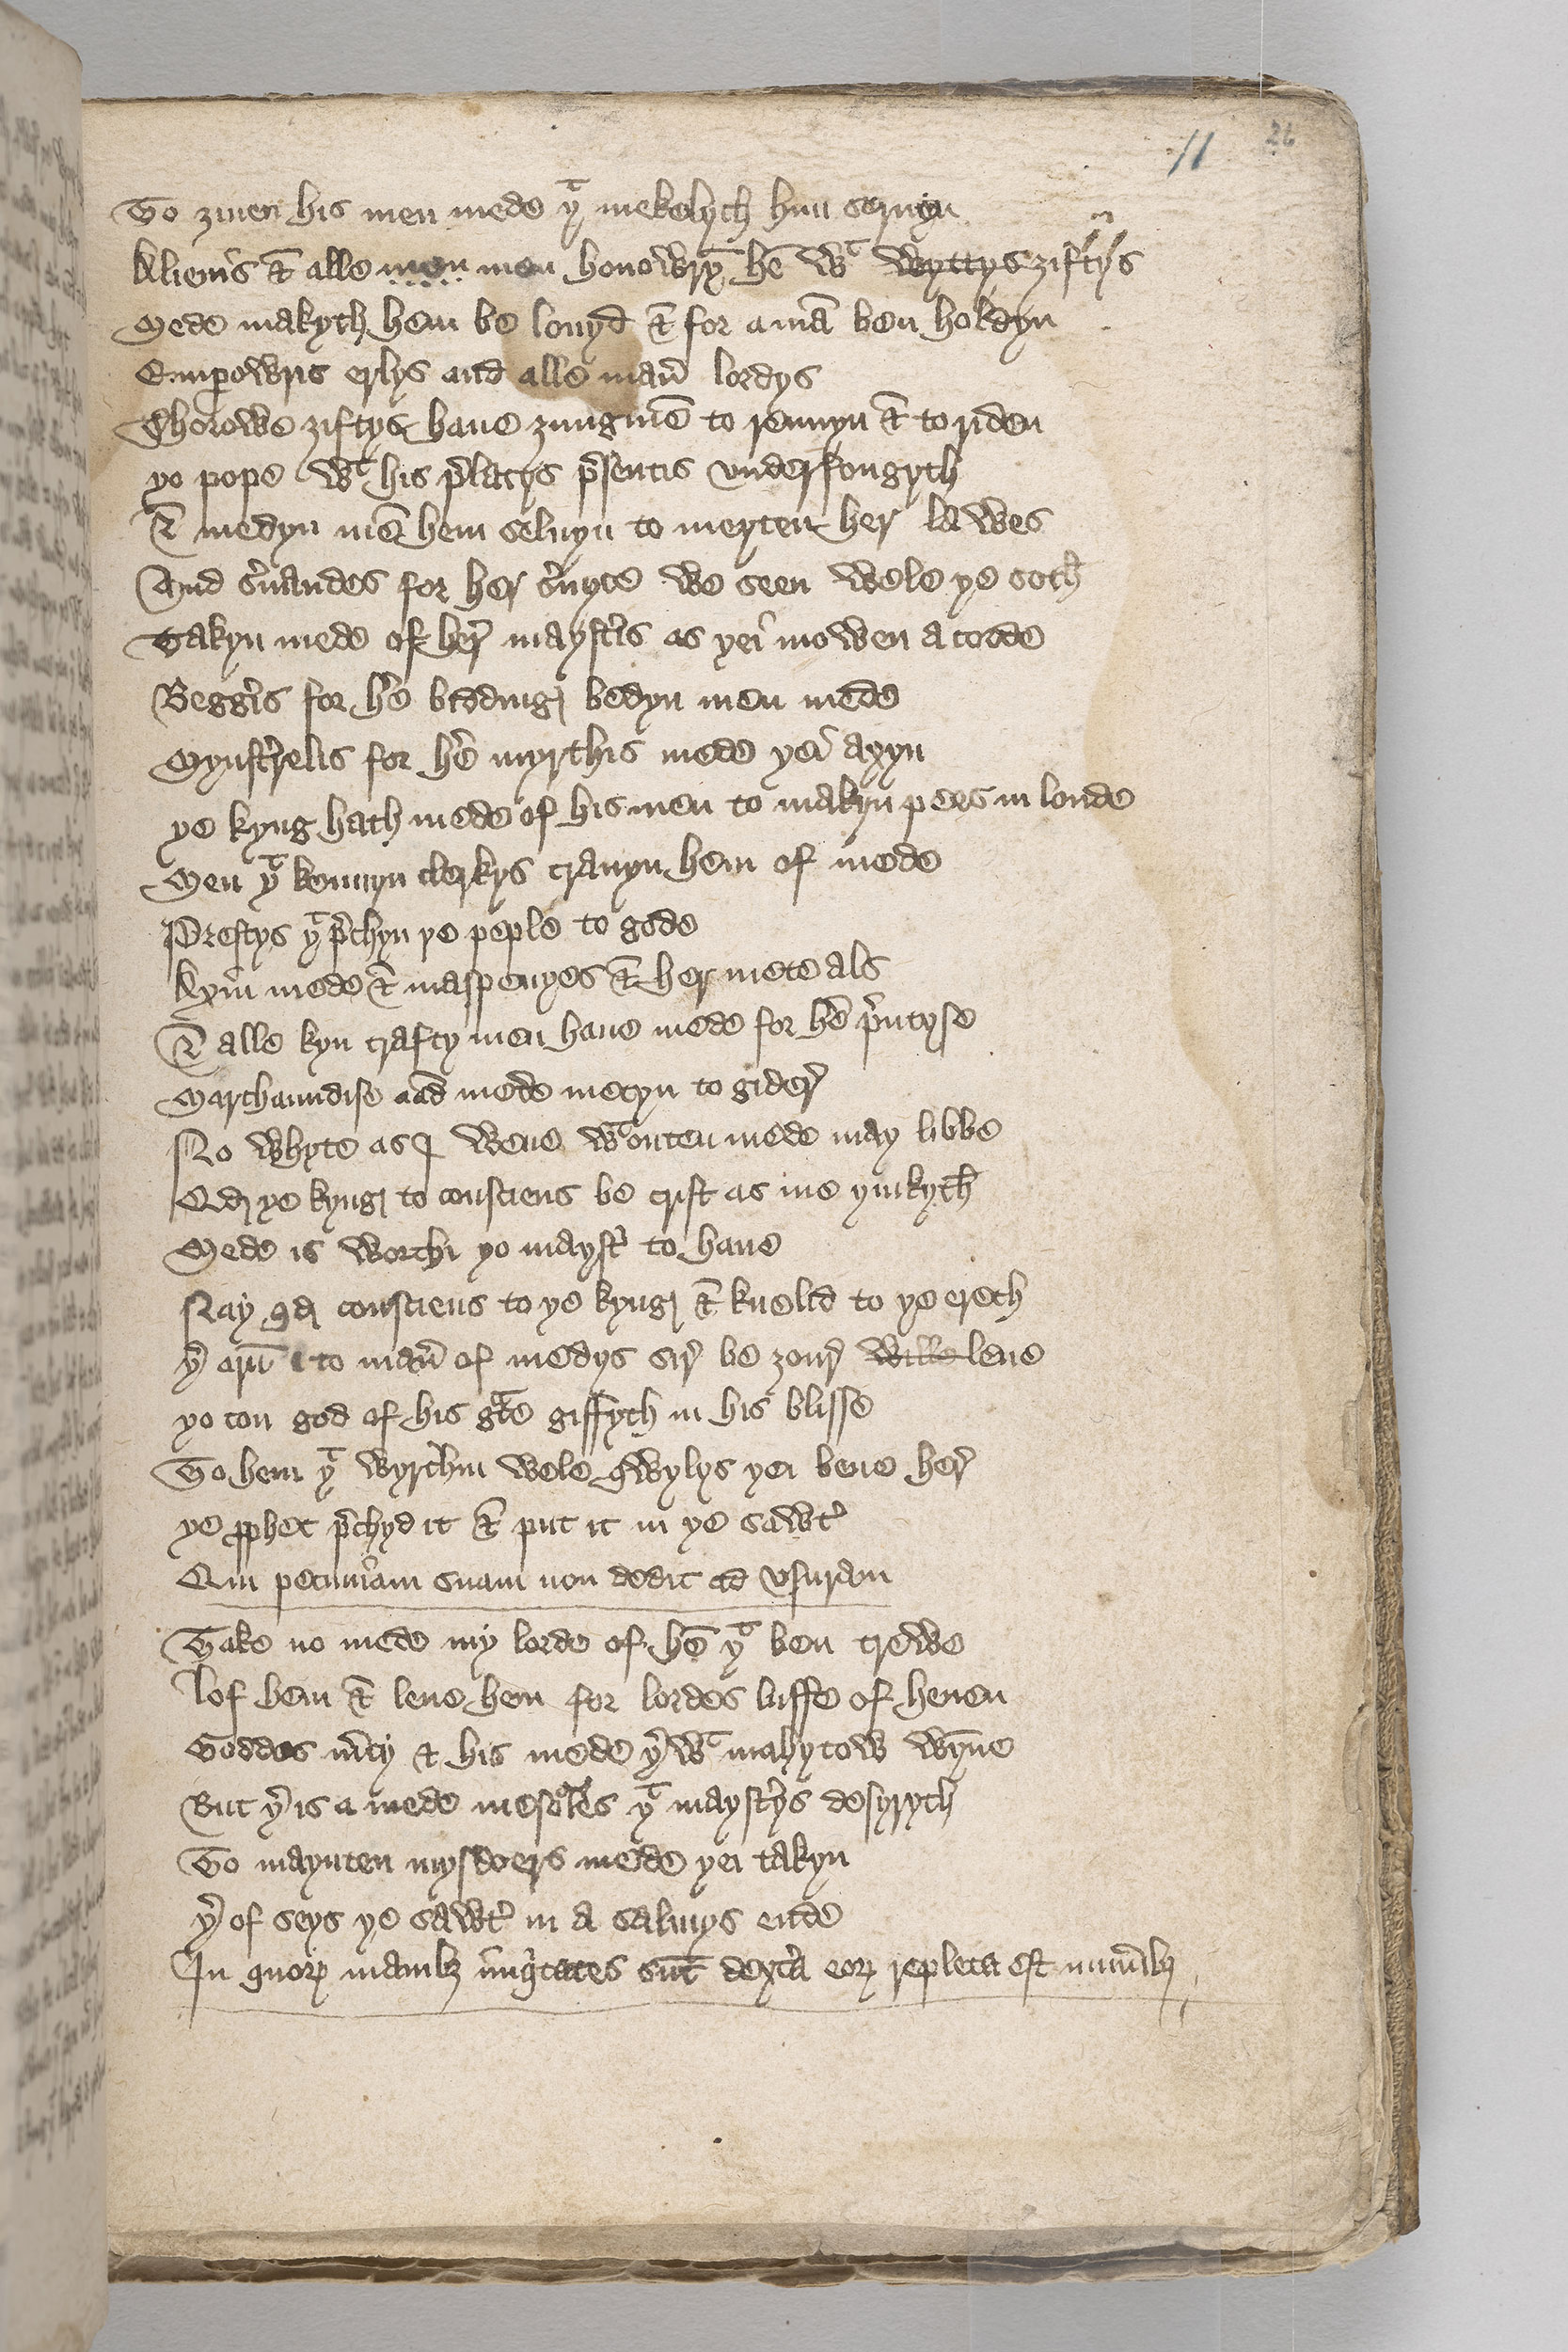 11 26
To ziuen his men mede yᵗ mekelych hym seruyn
Alienis & alle men men honowryn hē wᵗ wyttys ziftys
Mede makyth hem be louyd & for a mā ben holdyn
Emperowris erlys and alle man̄ lordys
Thorowe ziftys haue zungmē to rennyn & to riden
ye pope wᵗ his p̄latys p̄sentis vnderfongyth
& medyn mē hem seluyn to meyten her lawes
And s̄uandes for her s̄uyce we seen wele ye soth
Takyn mede of her maystˢ as yei mowen acorde
Beggˢ for hē bidding bedyn men mede
Mynstrelis for hē myrthis mede yei axyn
ye kyng hath mede of his men to makyn pees in londe
Men yᵗ kennyn clerkys crauyn hem of mede
Prestys yᵗ p̄chyn ye peple to gode
Kym̄ mede & maspenyes & her mete als
& alle kyn crafty men haue mede for hē p̄ntyse
Marchaundise and mede metyn to gider
No whyte as I wene wᵗouten mede may libbe
Qd ye kyng to consciens be crist as me yinkyth
Mede is worthi ye maystˢ to haue
Nay qd consciens to ye kyng & knelid to ye ereth
yˢ arn to man̄ of medys sir be zour wille leue
yᵉ ton god of his gᵃce giffyth in his blisse
To hem yᵗ wyrchin wele qwylys yei bene her
ye ꝓphet p̄chyd it & put it in ye sawtˢ
Qui pecuniam suam non dedit ad vsuram
Take no mede my lorde of hē yᵗ ben trewe
lof hem & leue hem for lordes luffe of heuen
Goddes mcy & his mede yˢwᵗ mahytow wyne
But yˢ is a mede mesoles yᵗ maystˢys desyryth
To maynten mysdoers mede yei takyn
yˢ of seys ye sawtˢ in a salmys ende
In quoꝝ manibꝫ iniqͥtates sūt dextˢa eoꝝ repleta est munˢibꝫ